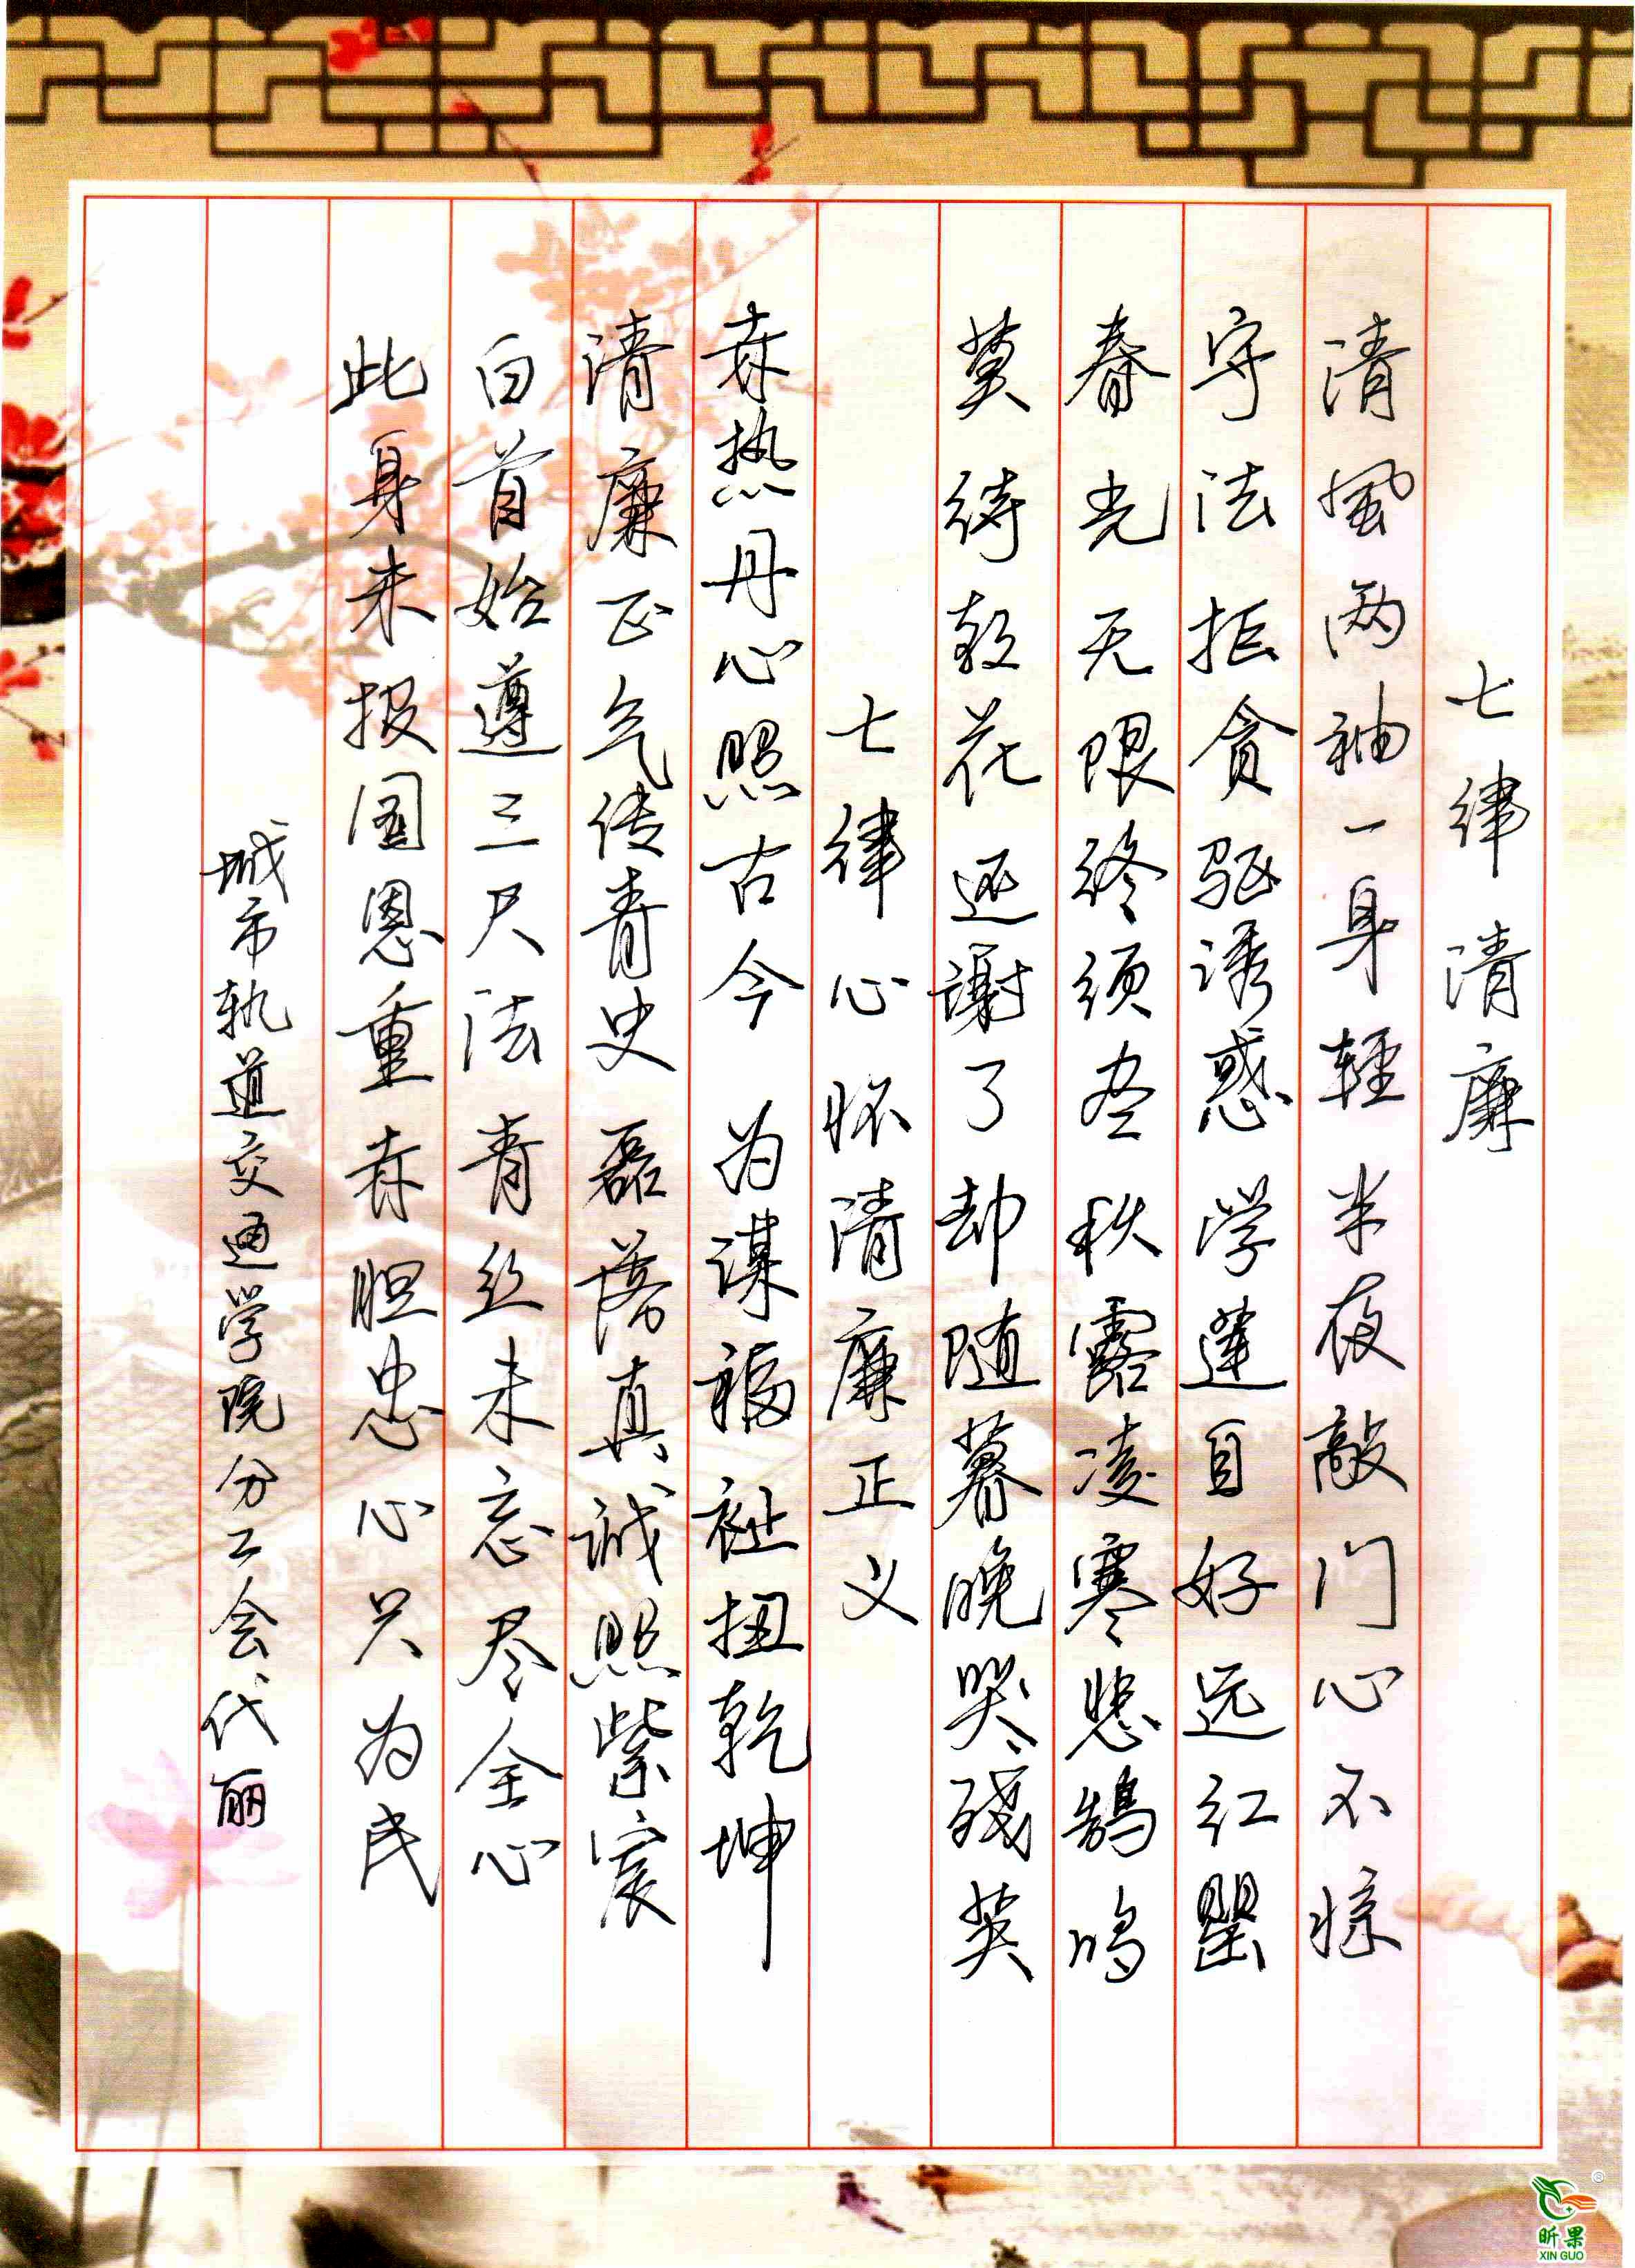 七律 清廉
清風两袖一身轻 半夜敲门心不惊
守法拒贪驱诱惑 学莲自好远红罂
春光无限终须尽 秋露凌寒悲鹄鸣
莫待教花还谢了 却随暮晚哭残英
七律 心怀清廉正义
赤热丹心照古今 为谋福祉扭乾坤
清廉正气传青史 磊落真诚照紫宸
白首始遵三尺法 青丝未忘尽全心
此身未报国恩重 赤胆忠心只为民
城市轨道交通学院分工会代丽
®
昕果
XIN GUO